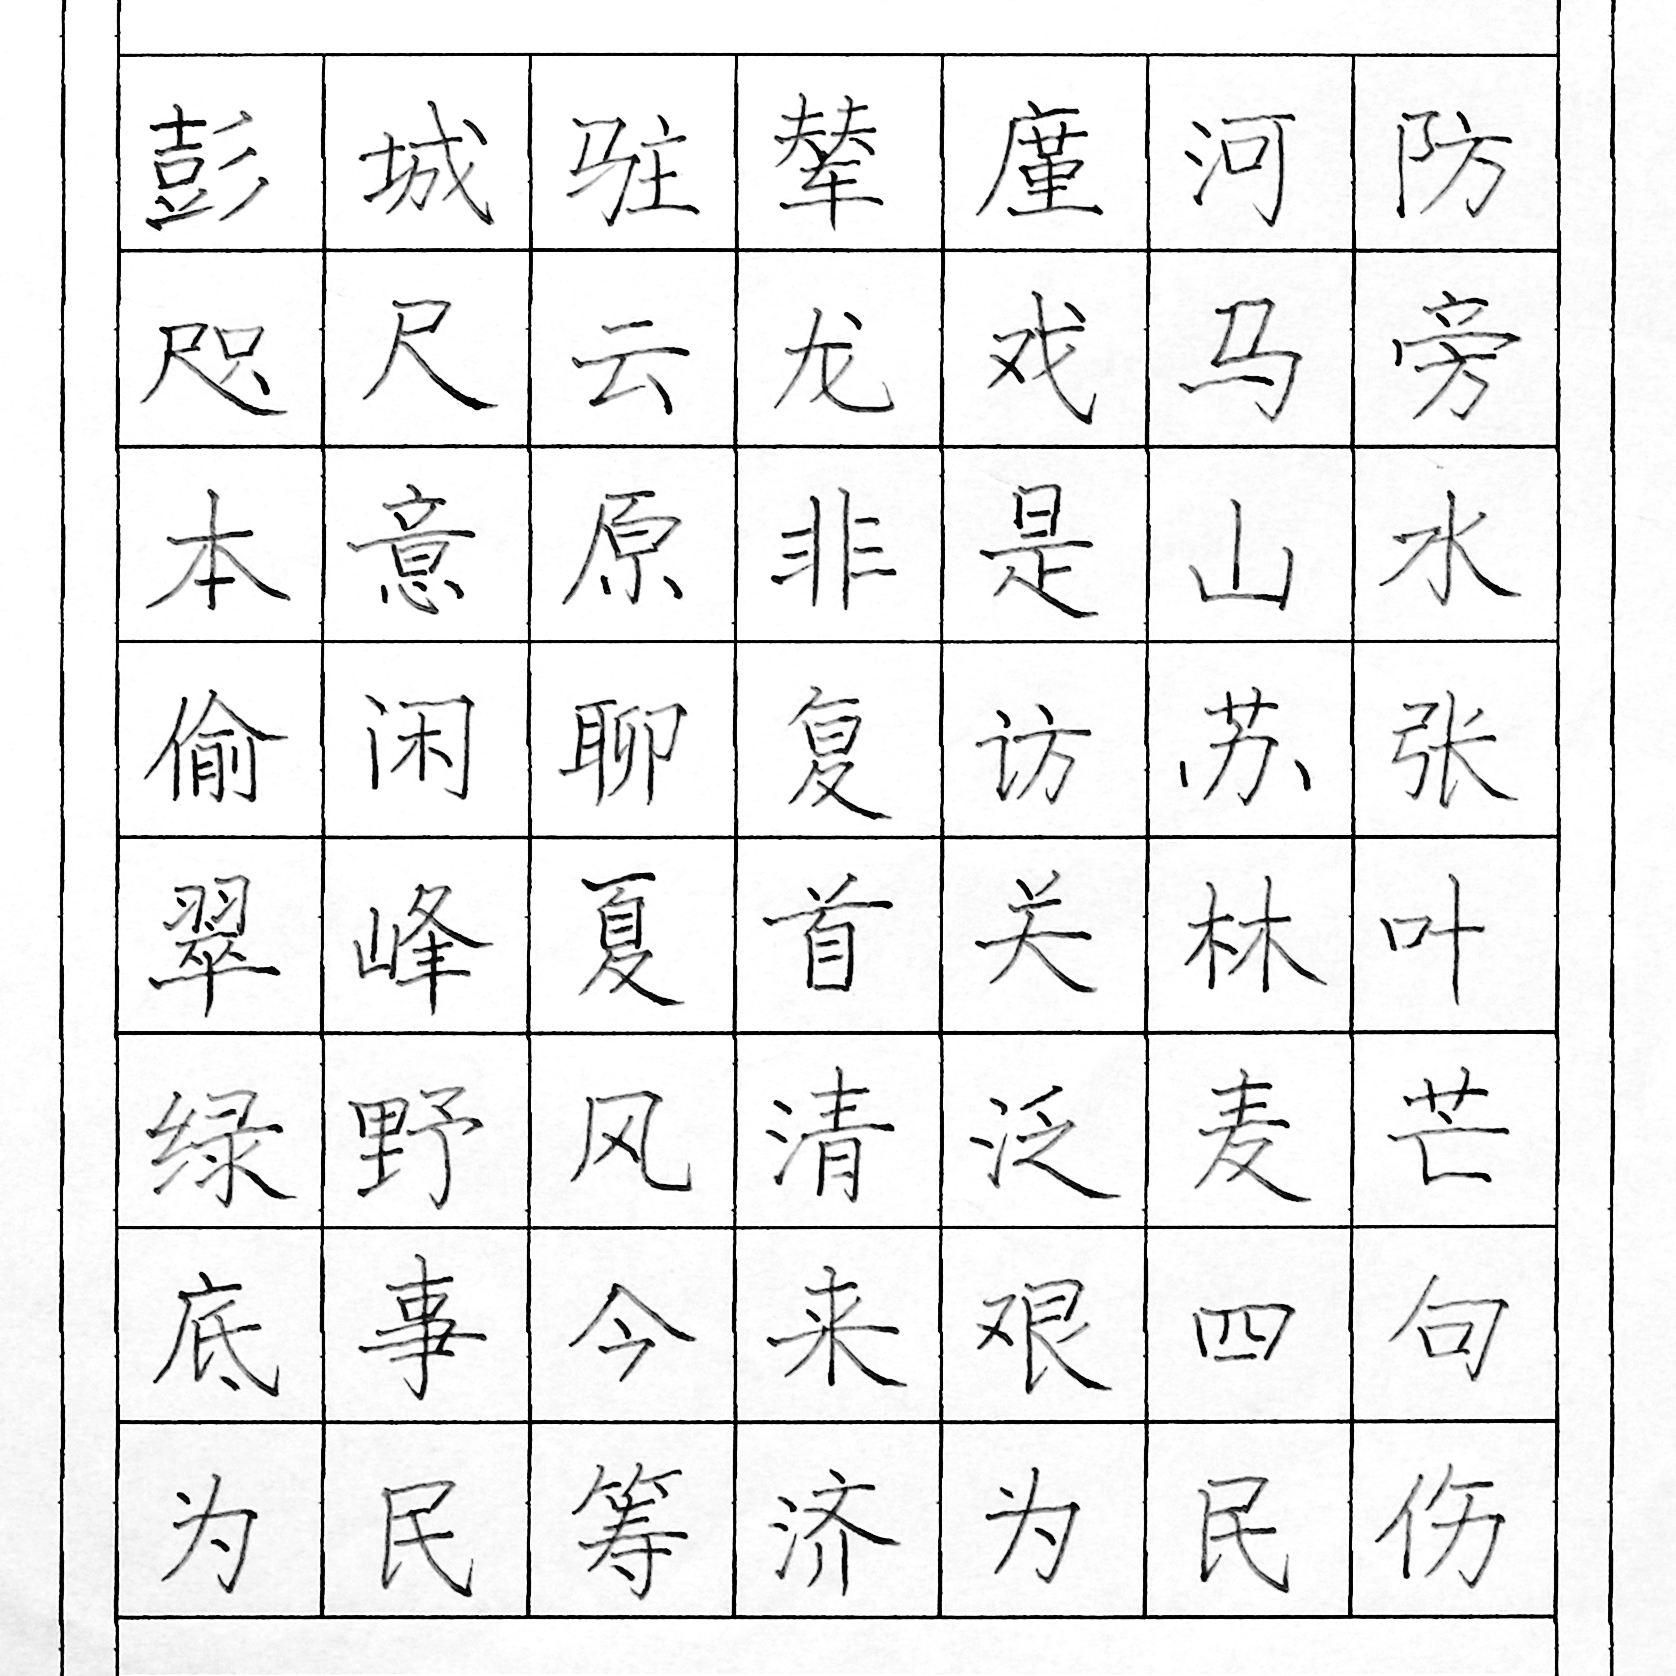 彭城驻辇廑河防
咫尺云龙戏马旁
本意原非是山水
偷闲聊复访苏张
翠峰夏首关林叶
绿野风清泛麦芒
底事今来艰四句
为民筹济为民伤